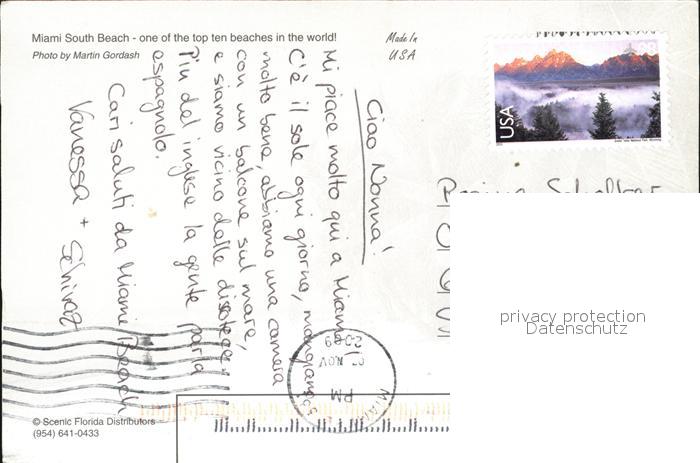 Miami South Beach - one of the top ten beaches in the world!
Photo by Martin Gordash
Made In
USA
USA
Ciao Nonna!
Mi piace molto qui a Miami!
C'è il sole ogni giorno, mangiamo
molto bene, abbiamo una camera
con un balcone sul mare,
e siamo vicino delle discoteche.
Piu del inglese la gente parla
espagnolo.
Cari saluti da Miami Beach
Vanessa +
MIAMI
PM
07 NOV
2009
privacy protection
Datenschutz
© Scenic Florida Distributors
(954) 641-0433